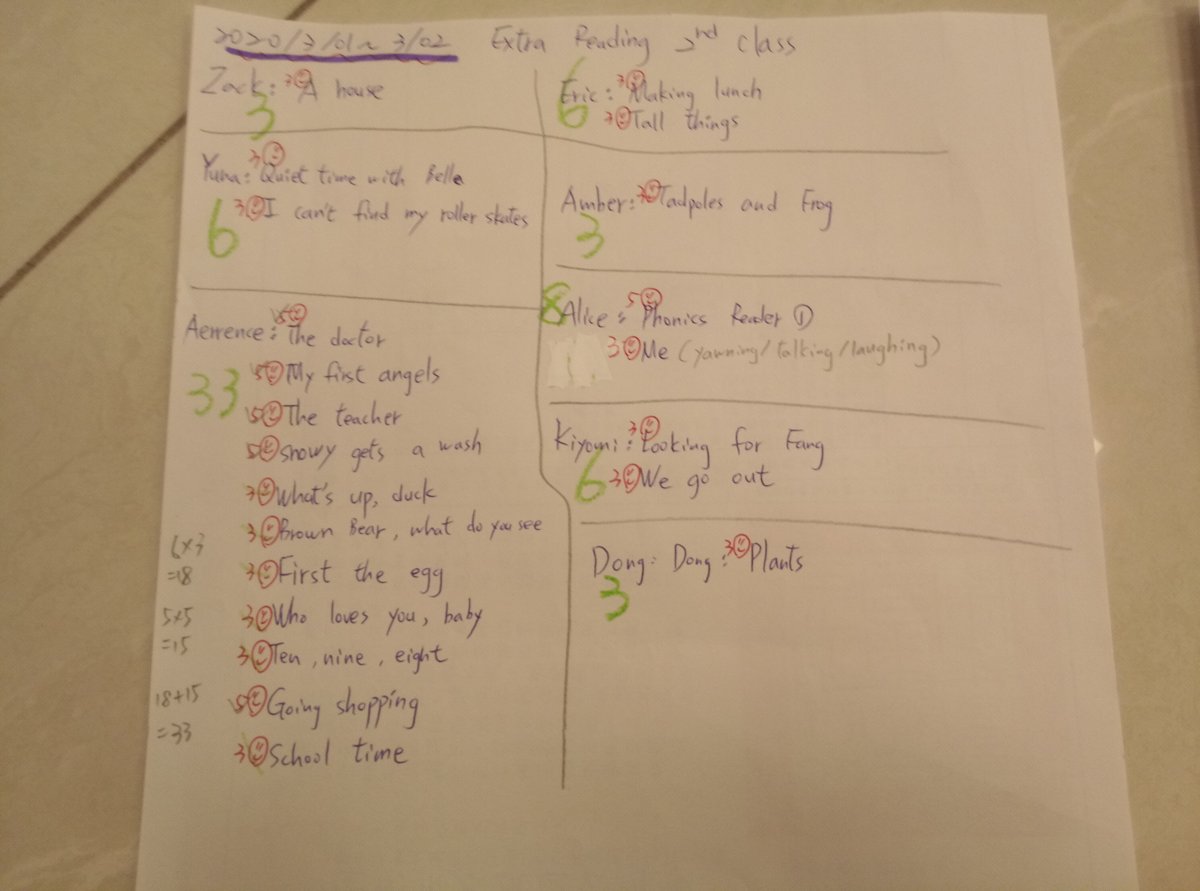 2020/3/01~3/02 Extra Reading 2nd class
Zack: 3 A house
3
Yuna: 3 Quiet time with Bella
3 I can't find my roller skates
6
Aerrence: 5 The doctor
5 My first angels
33
5 The teacher
5 Snowy gets a wash
3 What's up, duck
3 Brown Bear, what do you see
3 First the egg
3 Who loves you, baby
3 Ten, nine, eight
5 Going shopping
3 School time
6×3
=18
5×5
=15
18+15
=33
Eric: 3 Making lunch
6
3 Tall things
Amber: 3 Tadpoles and Frog
3
8
Alice: 5 Phonics Reader ①
3 Me (yawning/talking/laughing)
Kiyomi: 3 Looking for Fang
6
3 We go out
Dong: Dong: 3 Plants
3